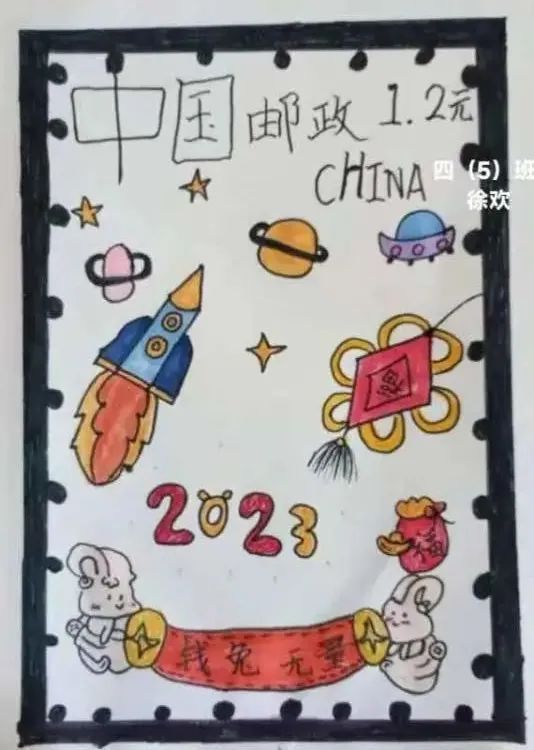 中国邮政 1.2元
CHINA
四（5）班
徐欢
2023
福
钱兔无量